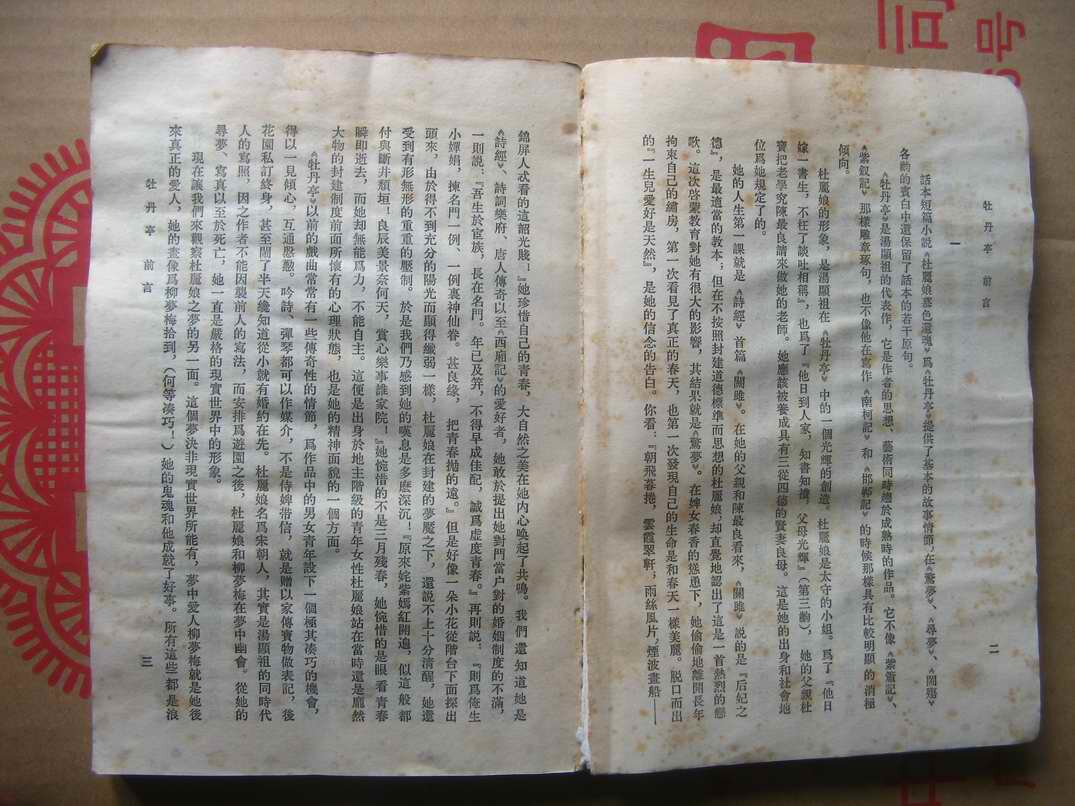 牡丹亭　前言
二
話本短篇小說《杜麗娘慕色還魂》爲《牡丹亭》提供了基本的故事情節，在《驚夢》、《尋夢》、《鬧殤》
各齣的賓白中還保留了話本的若干原句。
一
《牡丹亭》是湯顯祖的代表作，它是作者的思想、藝術同時趨於成熟時的作品。它不像《紫簫記》、
《紫釵記》那樣雕章琢句，也不像他在寫作《南柯記》和《邯鄲記》的時候那樣具有比較明顯的消極
傾向。
杜麗娘的形象，是湯顯祖在《牡丹亭》中的一個光輝的創造。杜麗娘是太守的小姐。爲了『他日
嫁一書生，不枉了談吐相稱』，也爲了『他日到人家，知書知禮，父母光輝』（第三齣），她的父親杜
寶把老學究陳最良請來做她的老師。她應該被養成具有三從四德的賢妻良母。這是她的出身和社會地
位爲她規定了的。
她的人生第一課就是《詩經》首篇《關雎》。在她的父親和陳最良看來，《關雎》說的是『后妃之
德』，是最適當的教本；但在不按照封建道德標準而思想的杜麗娘，却直覺地認出了這是一首熱烈的戀
歌。這次啓蒙教育對她有很大的影響，其結果就是《驚夢》。在婢女春香的慫恿下，她偷偷地離開長年
拘束自己的繡房，第一次看見了真正的春天，也第一次發現自己的生命是和春天一樣美麗。脫口而出
的『一生兒愛好是天然』，是她的信念的告白。你看：『朝飛暮捲，雲霞翠軒；雨絲風片，煙波畫船——
錦屏人忒看的這韶光賤！』她珍惜自己的青春，大自然之美在她內心喚起了共鳴。我們還知道她是
《詩經》、詩詞樂府、唐人傳奇以至《西廂記》的愛好者，她敢於提出她對門當户對的婚姻制度的不滿，
一則說：『吾生於宦族，長在名門。年已及笄，不得早成佳配，誠爲虛度青春。』再則說：『則爲俺生
小嬋娟，揀名門一例、一例裏神仙眷。甚良緣，把青春拋的遠。』但是好像一朵小花從階台下面探出
頭來，由於得不到充分的陽光而顯得纖弱一樣，杜麗娘在封建的夢魘之下，還說不上十分清醒，她還
受到有形無形的重重的壓制。於是我們乃感到她的嘆息是多麽深沉！『原來姹紫嫣紅開遍，似這般都
付與斷井頹垣！良辰美景奈何天，賞心樂事誰家院！』她惋惜的不是三月殘春，她惋惜的是眼看青春
瞬即逝去，而她却無能爲力，不能自主。這便是出身於地主階級的青年女性杜麗娘站在當時還是龐然
大物的封建制度前面所懷有的心理狀態，也是她的精神面貌的一個方面。
《牡丹亭》以前的戲曲常常有一些傳奇性的情節，爲作品中的男女青年設下一個極其凑巧的機會，
得以一見傾心，互通慇懃。吟詩、彈琴都可以作媒介，不是侍婢带信，就是贈以家傳寶物做表記，後
花園私訂終身，甚至鬧了半天纔知道從小就有婚約在先。杜麗娘名爲宋朝人，其實是湯顯祖的同時代
人的寫照，因之作者不能因襲前人的寫法，而安排爲遊園之後，杜麗娘和柳夢梅在夢中幽會。從她的
尋夢、寫真以至於死亡，她一直是嚴格的現實世界中的形象。
現在讓我們來觀察杜麗娘之夢的另一面。這個夢決非現實世界所能有，夢中愛人柳夢梅就是她後
來真正的愛人，她的畫像爲柳夢梅拾到，（何等凑巧！）她的鬼魂和他成就了好事。所有這些都是浪
牡丹亭　前言
三